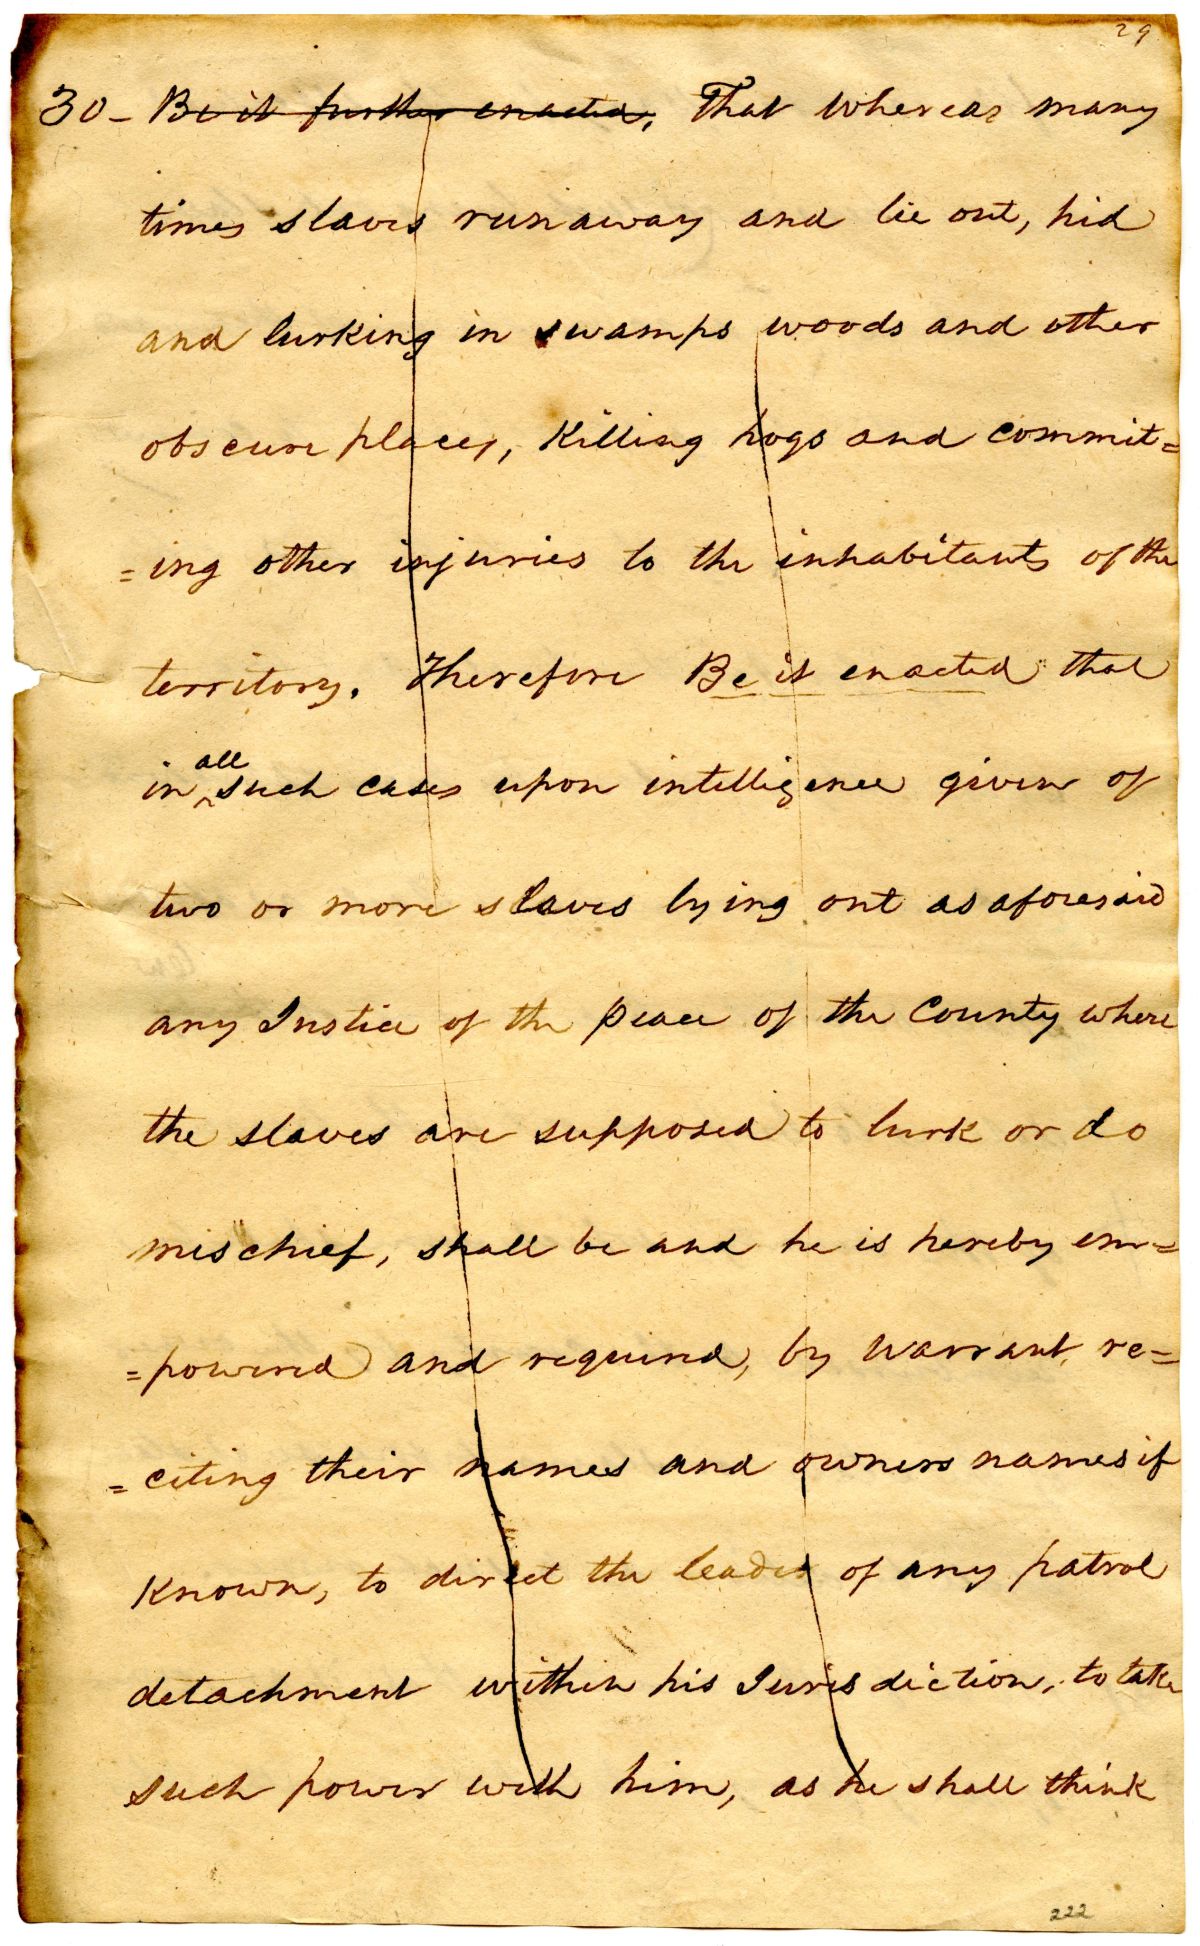 29
30- Be it further enacted, That whereas many
times slaves runaway and lie out, hid
and lurking in swamps woods and other
obscure places, Killing hogs and commit=
=ing other injuries to the inhabitants of the
territory. Therefore Be it enacted that
all
in such cases upon intelligence given of
two or more slaves lying out as aforesaid
any Justice of the peace of the County where
the slaves are supposed to lurk or do
mischief, shall be and he is hereby em=
=powered and required, by warrant, re=
=citing their names and owners names if
Known, to direct the leader of any patrol
detachment within his Jurisdiction, to take
such power with him, as he shall think
222